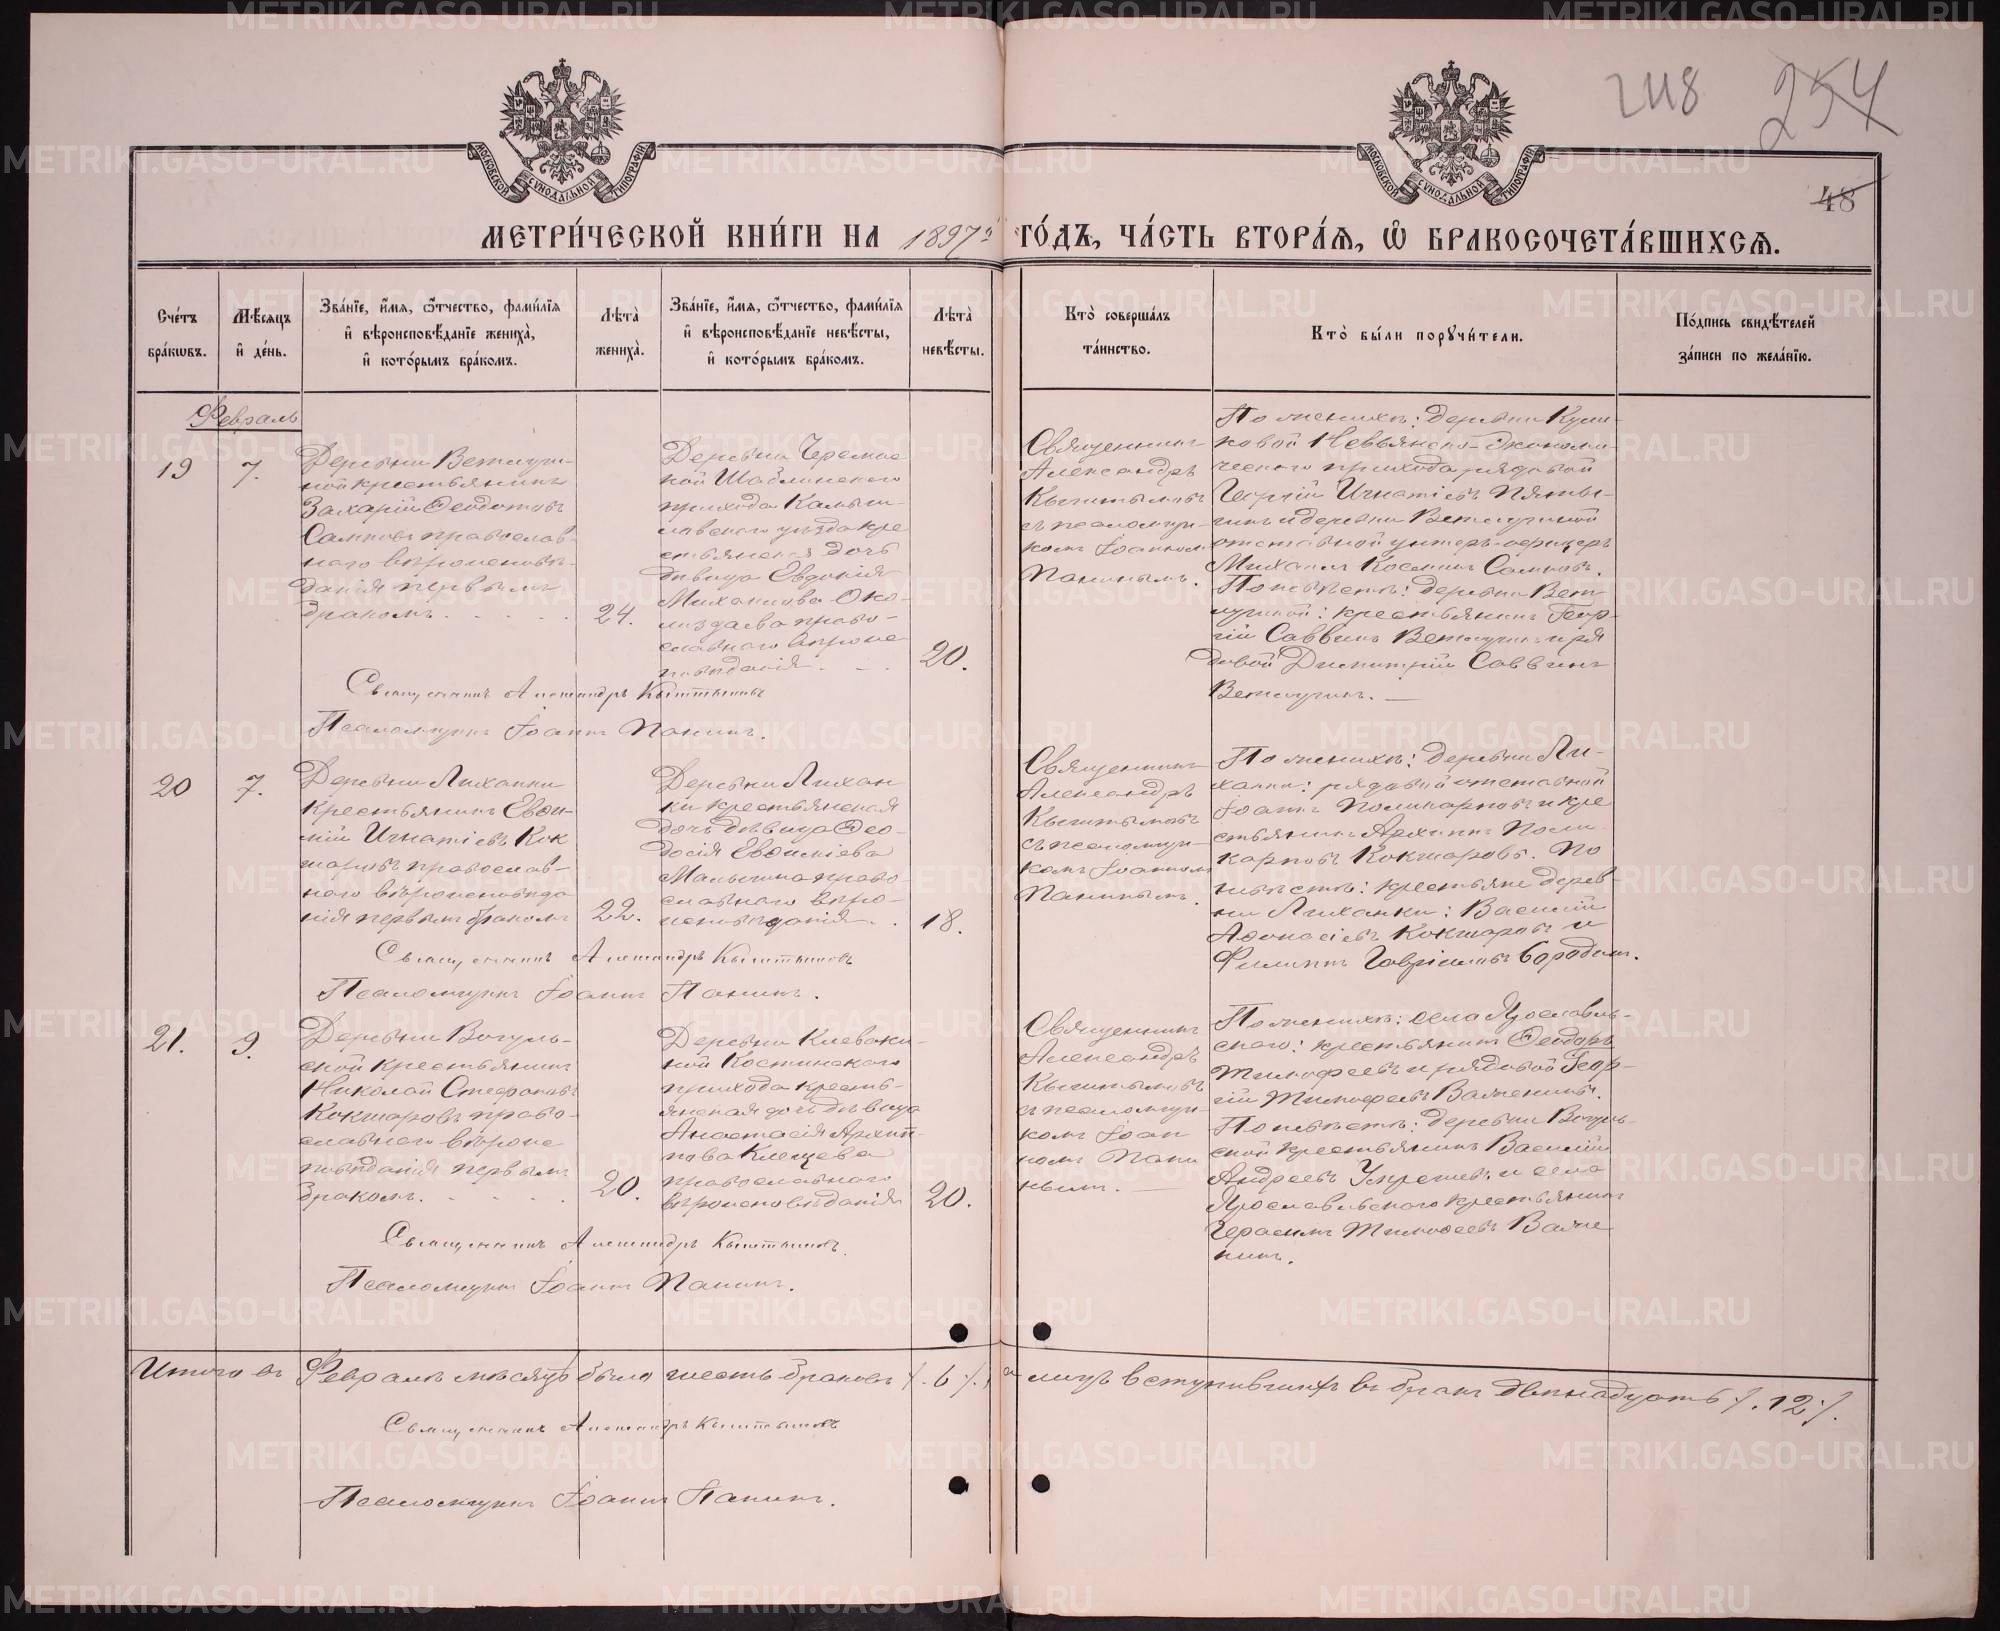 248 254
48
МОСКОВСКОЙ СѴНОДАЛЬНОЙ ТИПОГРАФІИ
МОСКОВСКОЙ СѴНОДАЛЬНОЙ ТИПОГРАФІИ
МЕТРИ́ЧЕСКОЙ КНИ́ГИ НА 1897й ГО́ДЪ, ЧА́СТЬ ВТОРА́Ѧ, Ѡ҆ БРАКОСОЧЕТА́ВШИХСѦ.
Сче́тъ бра́кѡвъ.
Мѣ́сѧцъ и҆ де́нь.
Зва́нїе, и҆́мѧ, ѻ҆́тчество, фами́лїѧ
и҆ вѣроисповѣ́данїе жениха̀,
и҆ кото́рымъ бра́комъ.
Лѣ́та̀ жениха̀.
Зва́нїе, и҆́мѧ, ѻ҆́тчество, фами́лїѧ
и҆ вѣроисповѣ́данїе невѣ́сты,
и҆ кото́рымъ бра́комъ.
Лѣ́та̀ невѣ́сты.
Кто̀ соверша́лъ
та́инство.
Кто̀ бы́ли порꙋчи́тели.
По́дпись свидѣ́телей
за́писи по жела́нїю.
Февраль
19
7.
Деревни Ветлуж-
ной крестьянинъ
Захарій Ѳеодотовъ
православ-
наго вѣроисповѣ-
данія первымъ
бракомъ. . . . .
24.
Деревни Черемис
ской Шаблинскаго
прихода Камыш-
ловскаго уѣзда кре
стьянская дочь
дѣвица Евдокія
Михаилова
право-
славнаго вѣроис
повѣданія. . .
20.
Священникъ
Александръ
Кыштымовъ
съ псаломщи-
комъ Іоанномъ
Панинымъ.
По женихѣ: деревни Кули-
ковой Невьянско-Экономи-
ческаго прихода рядовой
Георгій Игнатіевъ
и деревни
отставной унтеръ-офицеръ
Михаилъ Косминъ
По невѣстѣ: деревни
крестьянинъ Геор-
гій Саввинъ и ря
довой Димитрій Саввинъ
Священникъ Александръ Кыштымовъ
Псаломщикъ Іоаннъ Панинъ.
20
7.
Деревни Лиханки
крестьянинъ Евѳи-
мій Игнатіевъ Кок
шаровъ православ-
наго вѣроисповѣда
нія первымъ бракомъ
22.
Деревни Лихан
ки крестьянская
дочь дѣвица Ѳео-
досія Евѳиміева
Малыгина право-
славнаго вѣро-
исповѣданія. .
18.
Священникъ
Александръ
Кыштымовъ
съ псаломщи-
комъ Іоанномъ
Панинымъ.
По женихѣ: деревни Ли-
ханки: рядовой отставной
Іоаннъ Поликарповъ и кре
стьянинъ Архиппъ Поли-
карповъ Кокшаровъ. По
невѣстѣ: крестьяне дерев-
ни Лиханки: Василій
Аѳонасіевъ Кокшаровъ и
Филиппъ Гавріиловъ Бородинъ.
Священникъ Александръ Кыштымовъ
Псаломщикъ Іоаннъ Панинъ.
21.
9.
Деревни Вогуль-
ской крестьянинъ
Николай Стефановъ
Кокшаровъ право-
славнаго вѣроис
повѣданія первымъ
бракомъ. . . . .
20.
Деревни Клеваки-
ной Костинскаго
прихода кресть-
янская дочь дѣвица
Анастасія Архип-
пова Клещева
православнаго
вѣроисповѣданія
20.
Священникъ
Александръ
Кыштымовъ
съ псаломщи-
комъ Іоан
номъ Пани
нымъ. —
По женихѣ: села Ярославль-
скаго: крестьянинъ Ѳеодоръ
Тимофеевъ и рядовой Геор-
гій Тимофеевъ Важенины.
По невѣстѣ: деревни Вогуль-
ской крестьянинъ Василій
Андреевъ и села
Ярославльскаго крестьянинъ
Герасимъ Тимоѳеевъ Важе
нинъ.
Священникъ Александръ Кыштымовъ.
Псаломщикъ Іоаннъ Панинъ.
Итого въ Февралѣ мѣсяцѣ было шесть браковъ /. 6 /. а лицъ вступившихъ въ бракъ двѣнадцать /. 12 /.
Священникъ Александръ Кыштымовъ
Псаломщикъ Іоаннъ Панинъ.
METRIKI.GASO-URAL.RU